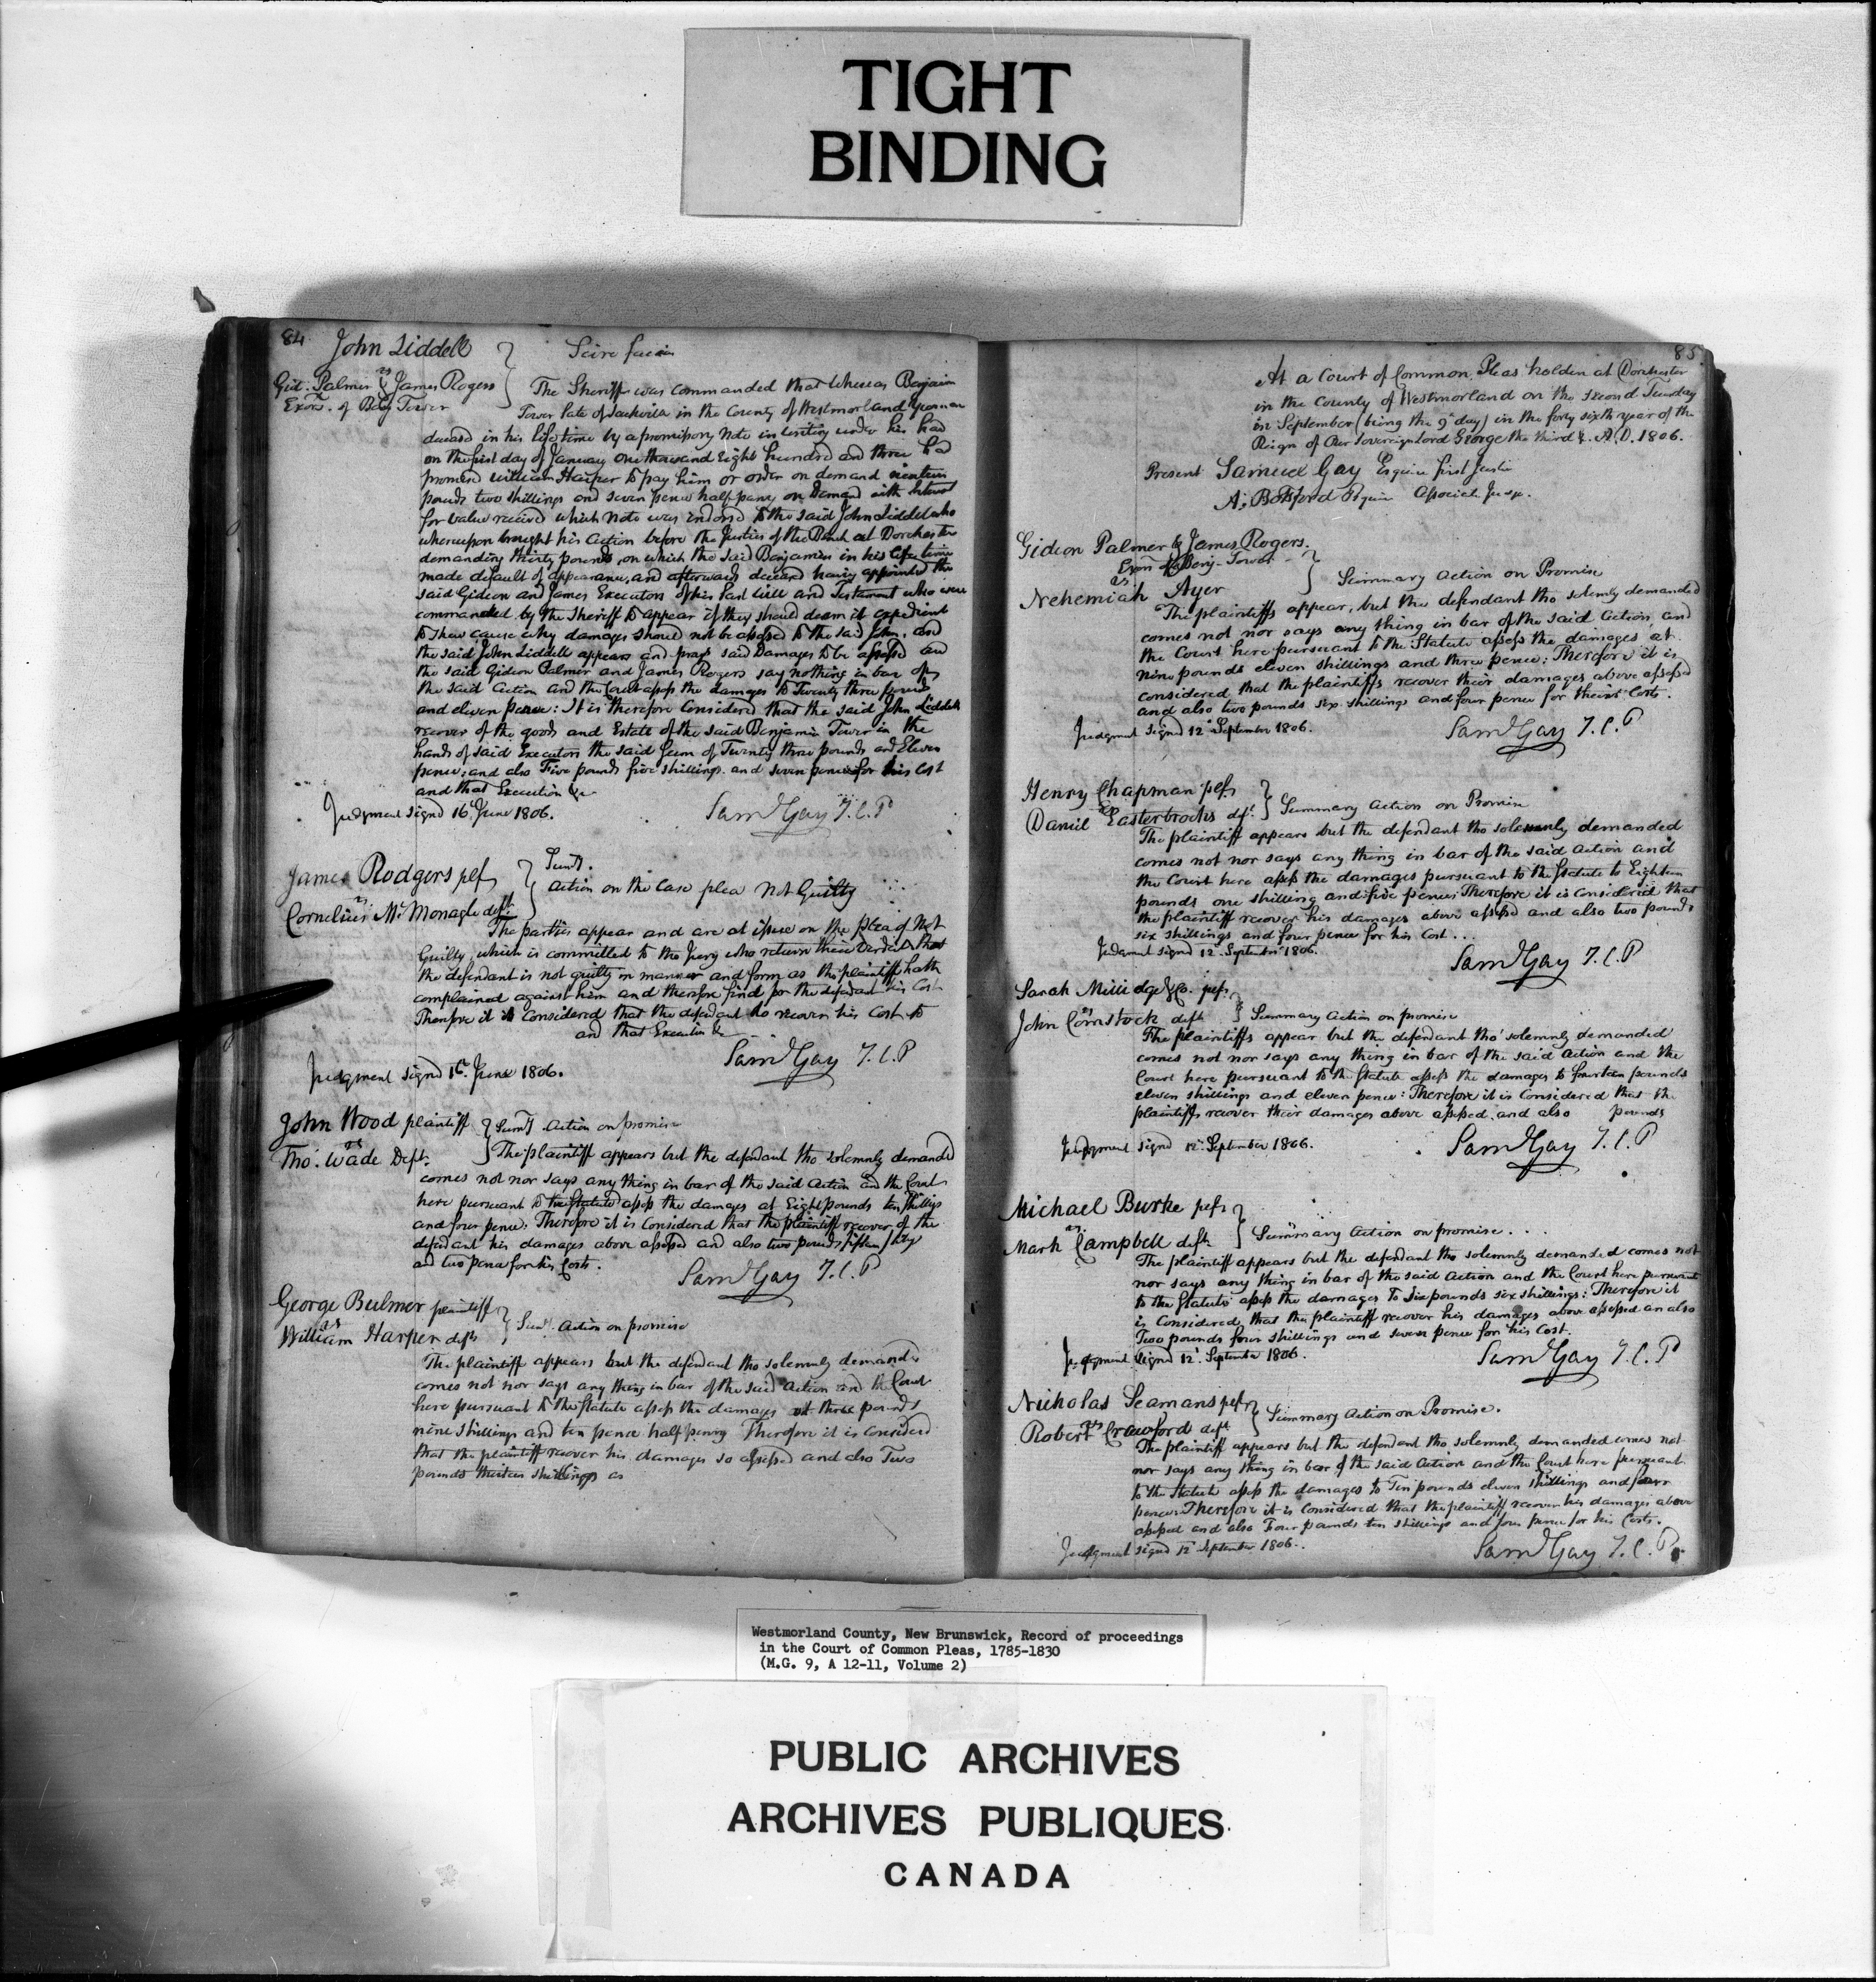 TIGHT
BINDING
84
John Liddell
vs
Gid. Palmer & James Rogers
Exors. of Benj Tower
Scire facias
The Sheriff was commanded that whereas Benjamin
Tower late of Sackville in the County of Westmorland Yeoman
deceased in his life time by a promissory Note in writing under his hand
on the first day of January One thousand Eight hundred and three had
promised William Harper to pay him or order on demand nineteen
pounds two shillings and seven pence half penny on Demand with Interest
for value received which Note was indorsed to the said John Liddel who
whereupon brought his Action before the Justices of the Bench at Dorchester
demanding thirty pounds, on which the said Benjamin in his life time
made default of appearance, and afterwards deceased having appointed the
said Gideon and James Executors of his Last Will and Testament who were
commanded by the Sheriff to appear if they should deem it expedient
to shew cause why damages should not be assessed to the said John, and
the said John Liddell appears and prays said Damages to be assessed and
the said Gideon Palmer and James Rogers say nothing in bar of
the said Action and the Court assess the damages to Twenty three pounds
and eleven pence: It is therefore Considered that the said John Liddell
recover of the goods and Estate of the said Benjamin Tower in the
hands of said Executors the said Sum of Twenty three pounds and Eleven
pence; and also Five pounds five shillings and seven pence for his Cost
and that Execution &c
Judgment signd 16 June 1806.
Saml Gay J.C.P
James Rodgers plf
vs
Cornelius McMonagle deft
Sumy.
Action on the Case plea Not Guilty
The parties appear and are at issue on the plea of Not
Guilty, which is committed to the Jury who return their Verdict that
the defendant is not guilty in manner and form as the plaintiff hath
complained against him and therefore find for the defendant his Cost
Therefore it is Considered that the defendant do recover his Cost to
and that Execution &c
Saml Gay J.C.P
Judgment signd 16. June 1806.
John Wood plaintiff
vs
Tho. Wade Deft.
Sumy Action on promise
The plaintiff appears but the defendant tho solemnly demanded
comes not nor says any thing in bar of the said Action and the Court
here pursuant to the Statute assess the damages at Eight pounds ten shillings
and four pence; Therefore it is Considered that the plaintiff recover of the
defendant his damages above assessed and also two pounds fifteen shillings
and two pence for his Costs.
Saml Gay J.C.P
George Bulmer plaintiff
vs
William Harper deft
Sumy. Action on promise
The plaintiff appears but the defendant tho solemnly demanded
comes not nor says any thing in bar of the said Action and the Court
here pursuant to the Statute assess the damages at three pounds
nine shillings and ten pence half penny Therefore it is Considered
that the plaintiff recover his damages so assessed and also Two
pounds thirteen shillings as
85
At a Court of Common Pleas holden at Dorchester
in the County of Westmorland on the second Tuesday
in September (being the 9th day) in the forty sixth year of the
Reign of Our Sovereign Lord George the third &. A.D. 1806.
Present Samuel Gay Esquire first Justice
A. Botsford Esquire Associate Judge.
Gideon Palmer & James Rogers.
Exors of Benj. Tower
vs.
Nehemiah Ayer
Summary Action on Promise
The plaintiffs appear, but the defendant tho solemnly demanded
comes not nor says any thing in bar of the said Action, and
the Court here pursuant to the Statute assess the damages at
nine pounds eleven shillings and three pence: Therefore it is
considered that the plaintiffs recover their damages above assessed
and also two pounds six shillings and four pence for their Costs.
Judgment signd 12 September 1806.
Saml Gay J.C.P
Henry Chapman plf.
vs
Daniel Easterbrooks dft
Summary Action on Promise
The plaintiff appears but the defendant tho solemnly demanded
comes not nor says any thing in bar of the said Action and
the Court here assess the damages pursuant to the Statute to Eighteen
pounds one shilling and five pence Therefore it is Considered that
the plaintiff recover his damages above assessed and also two pounds
six shillings and four pence for his Cost...
Judgment signd 12. September 1806.
Saml Gay J.C.P
Sarah Millidge & Co. plfs
vs
John Comstock deft
Summary Action on promise
The plaintiffs appear but the defendant tho' solemnly demanded
comes not nor says any thing in bar of the said Action and the
Court here pursuant to the Statute assess the damages to fourteen pounds
eleven shillings and eleven pence: Therefore it is Considered that the
plaintiffs recover their damages above assessed, and also pounds
Judgment signd 12. September 1806.
Saml Gay J.C.P
Michael Burke plf
vs.
Mark Campbell deft
Summary Action on promise...
The plaintiff appears but the defendant tho solemnly demanded comes not
nor says any thing in bar of the said Action and the Court here pursuant
to the Statute assess the damages to Six pounds six shillings: Therefore it
is Considered that the plaintiff recover his damages above assessed an also
Two pounds four shillings and seven pence for his Cost.
Judgment signd 12. September 1806.
Saml Gay J.C.P
Nicholas Seamans plf
vs
Robert Crawford deft
Summary Action on Promise.
The plaintiff appears but the defendant tho solemnly demanded comes not
nor says any thing in bar of the said Action and the Court here pursuant
to the Statute assess the damages to Ten pounds eleven shillings and four
pence Therefore it is Considered that the plaintiff recover his damages above
assessed and also Four pounds ten shillings and four pence for his Costs.
Judgment signd 12 September 1806..
Saml Gay J.C.P
Westmorland County, New Brunswick, Record of proceedings
in the Court of Common Pleas, 1785-1830
(M.G. 9, A 12-11, Volume 2)
PUBLIC ARCHIVES
ARCHIVES PUBLIQUES
CANADA